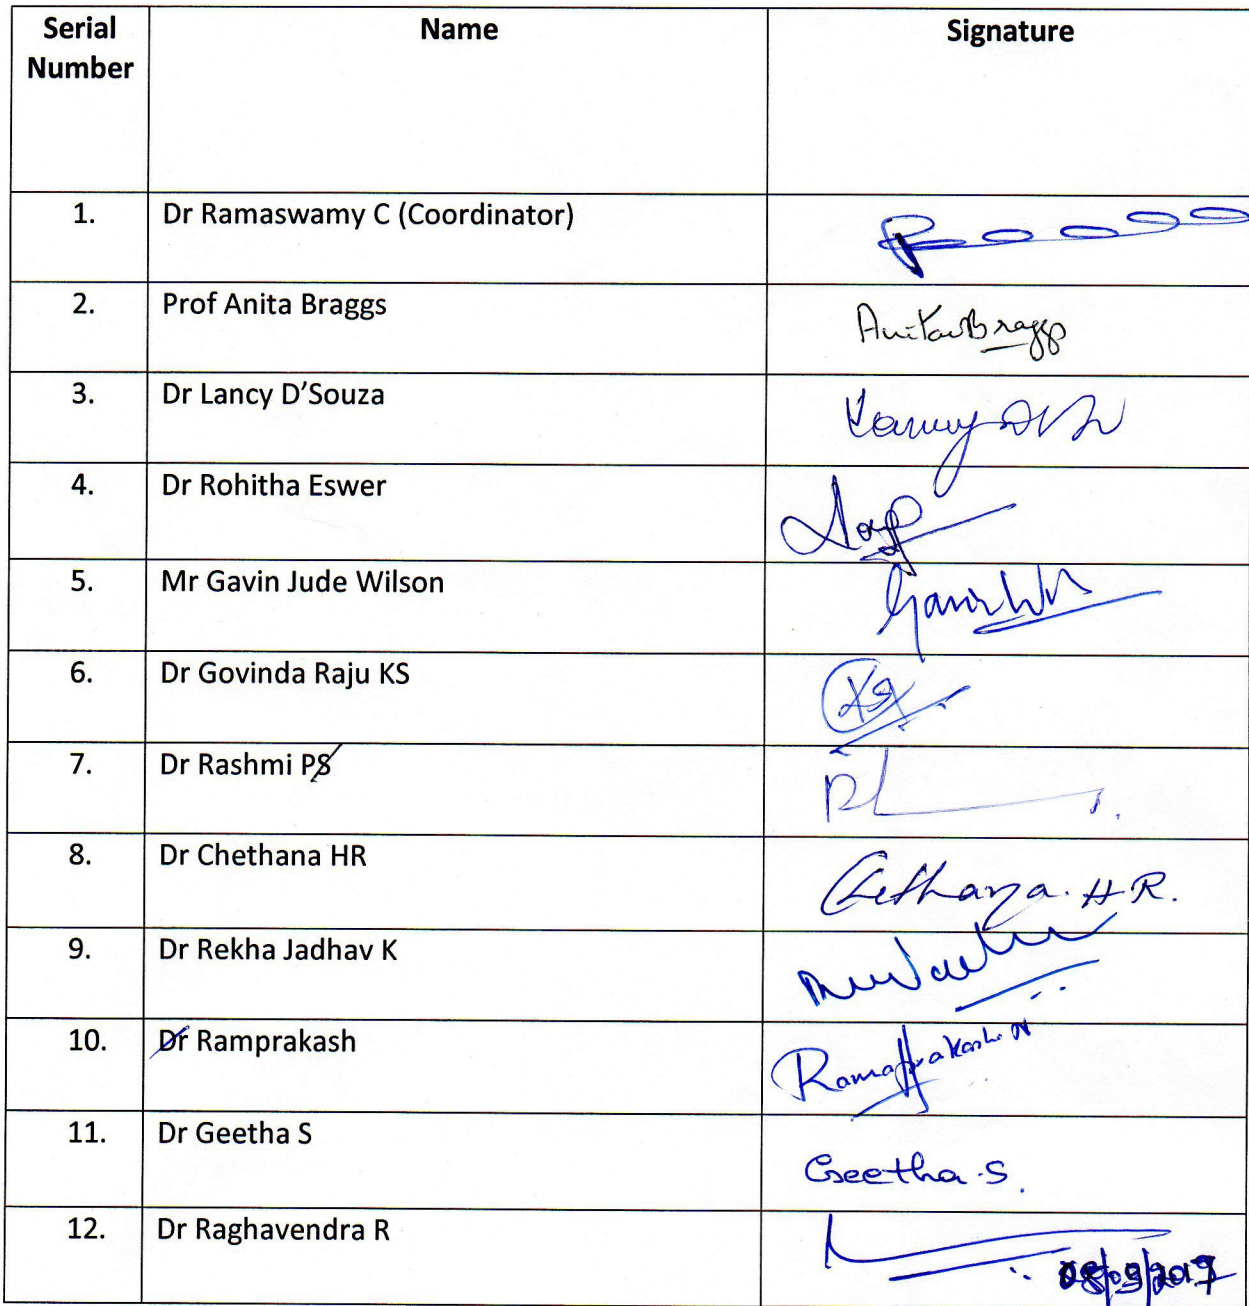 Serial Number Name Signature
1. Dr Ramaswamy C (Coordinator)
2. Prof Anita Braggs Anita Braggs
3. Dr Lancy D'Souza
4. Dr Rohitha Eswer
5. Mr Gavin Jude Wilson
6. Dr Govinda Raju KS
7. Dr Rashmi PS
8. Dr Chethana HR Chethana. H.R.
9. Dr Rekha Jadhav K
10. Dr Ramprakash Ramaprakash N
11. Dr Geetha S Geetha. S.
12. Dr Raghavendra R